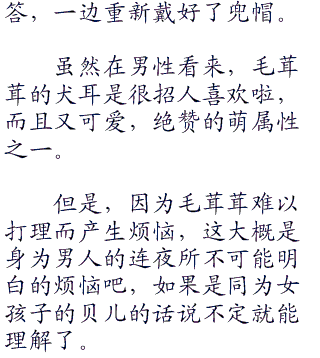 答，一边重新戴好了兜帽。
虽然在男性看来，毛茸
茸的犬耳是很招人喜欢啦，
而且又可爱，绝赞的萌属性
之一。
但是，因为毛茸茸难以
打理而产生烦恼，这大概是
身为男人的连夜所不可能明
白的烦恼吧，如果是同为女
孩子的贝儿的话说不定就能
理解了。